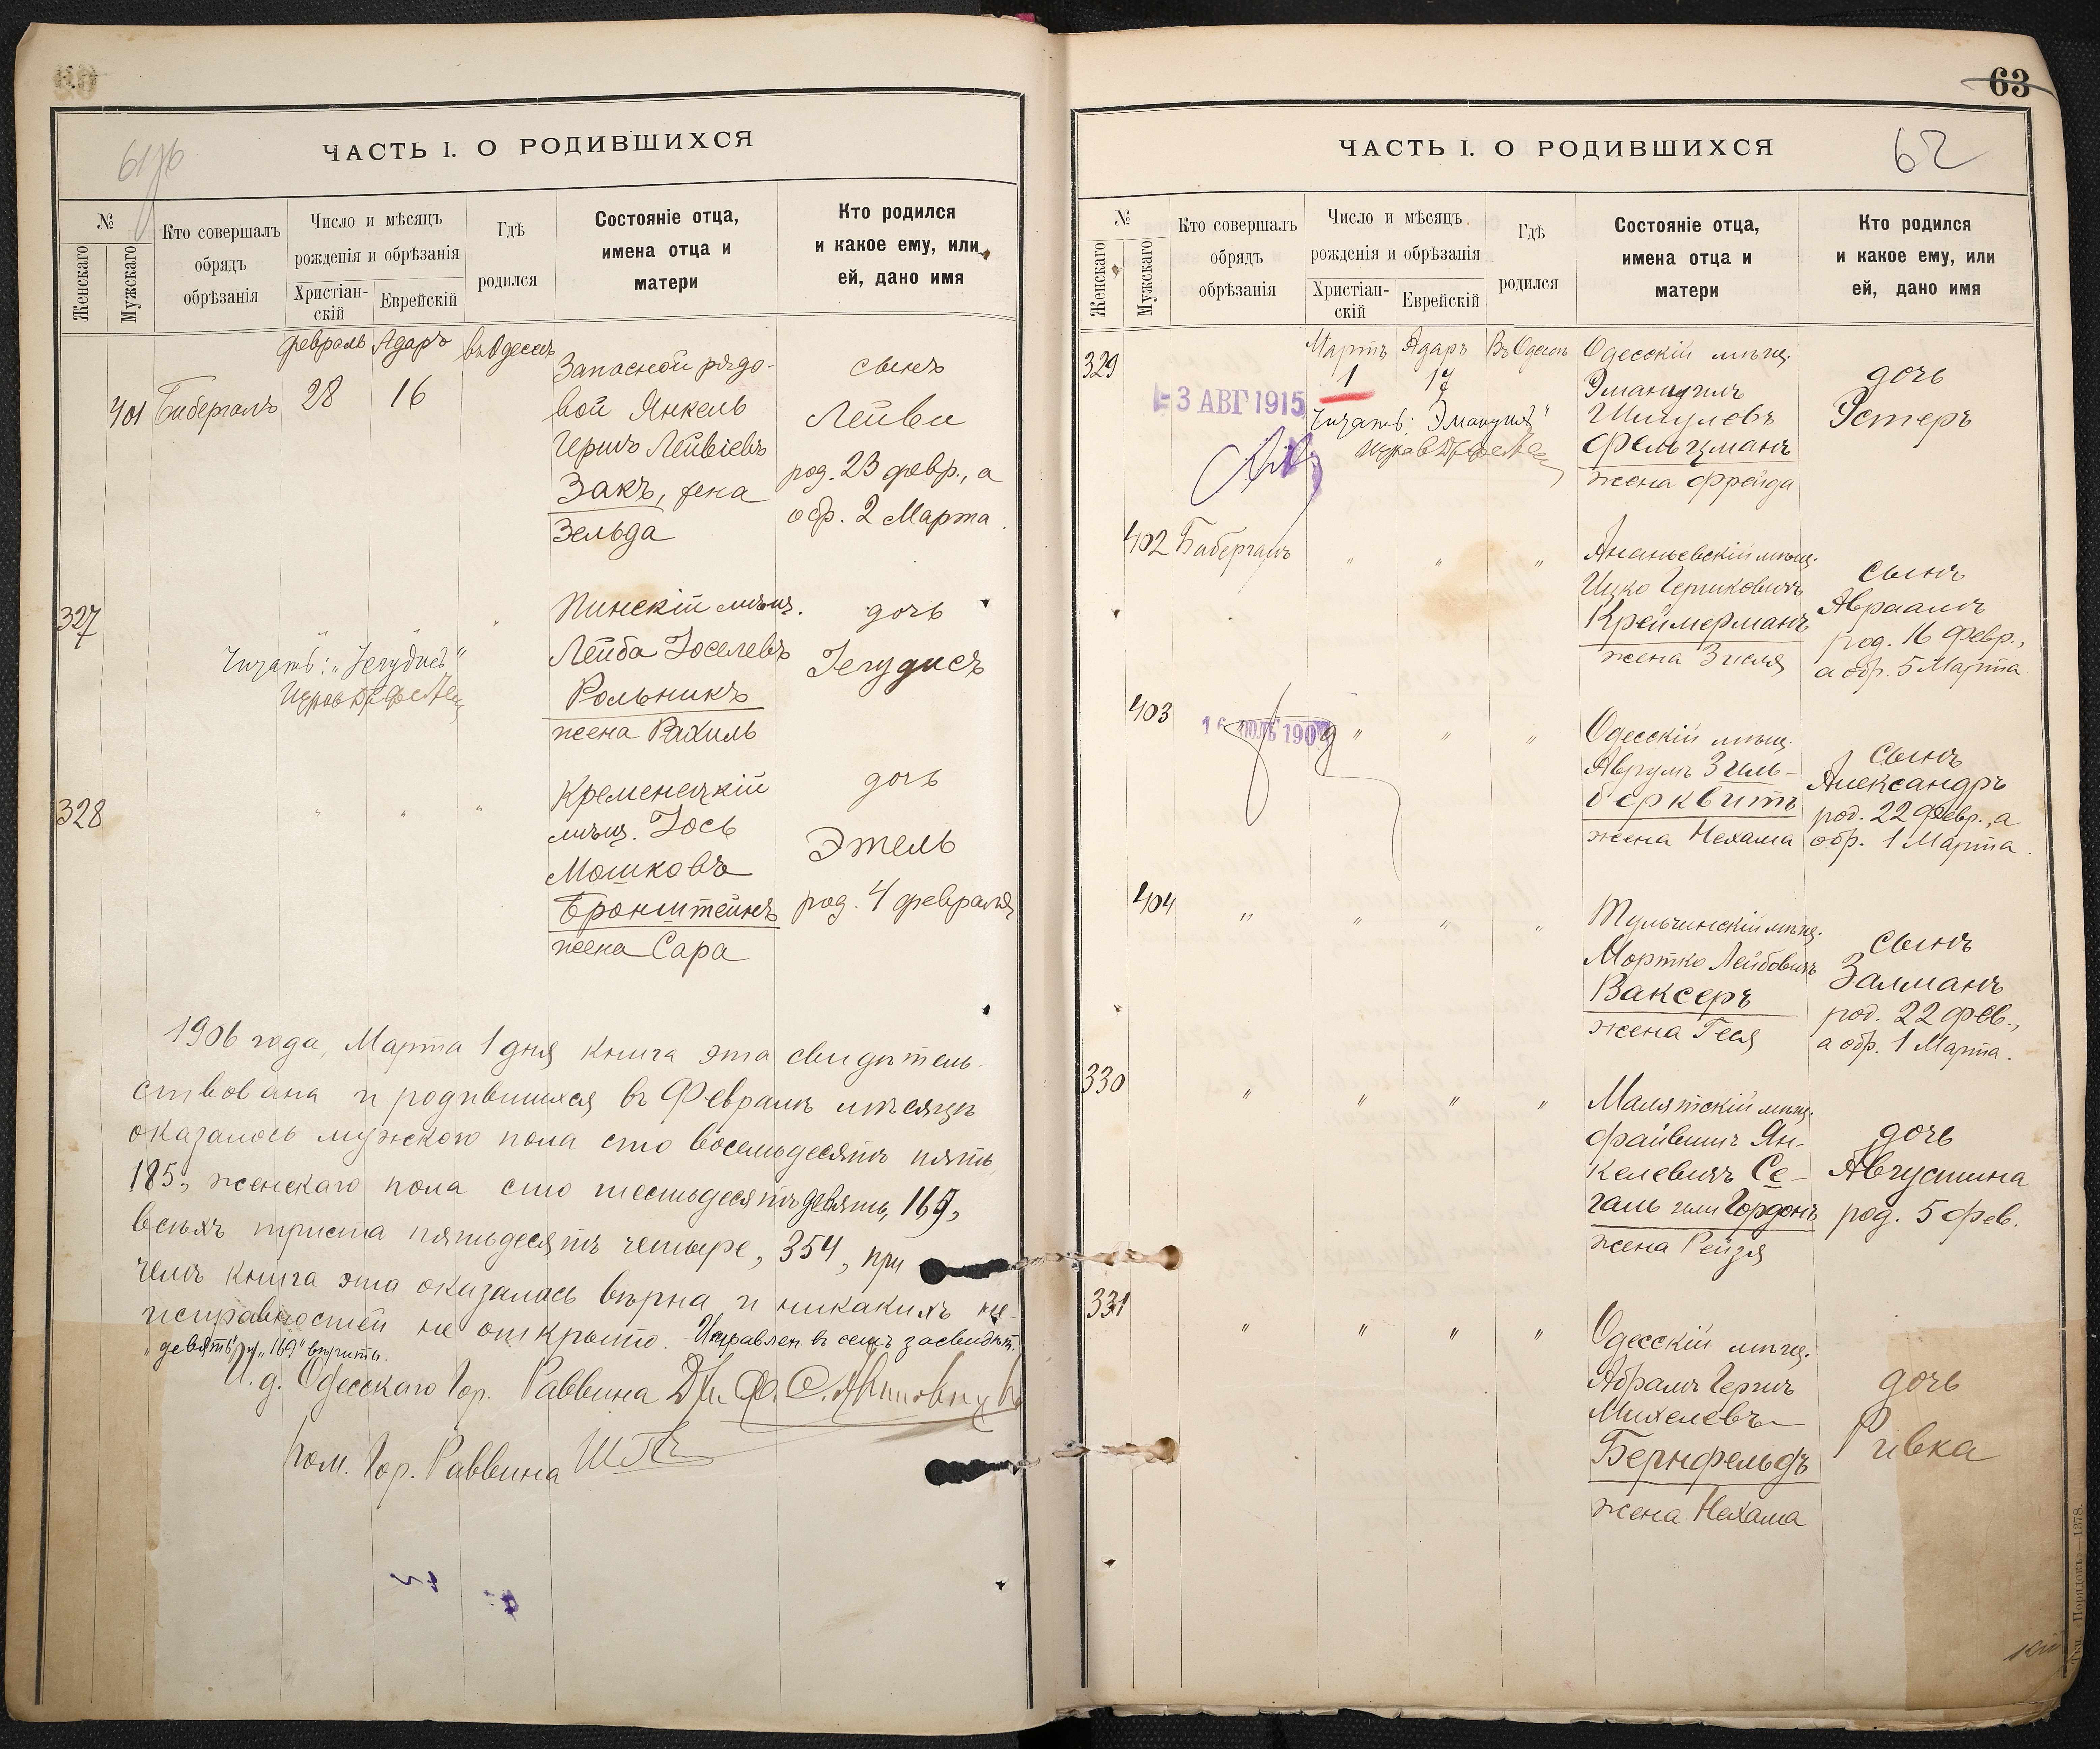 ЧАСТЬ I. О РОДИВШИХСЯ
№
Женскаго
Мужскаго
Кто совершалъ
обрядъ
обрѣзанія
Число и мѣсяцъ
рожденія и обрѣзанія
Христіан-
скій
Еврейскій
Гдѣ
родился
Состояніе отца,
имена отца и
матери
Кто родился
и какое ему, или
ей, дано имя
февраль Адаръ въ Одессѣ
401 Бибергалъ 28 16
Запасной рядо-
вой Янкель
Гершъ Лейвіевъ
Закъ, жена
Зельда
сынъ
Лейви
род. 23 февр., а
обр. 2 Марта
327
" " "
Читать: "Іегудисъ"
Пинскій мѣщ.
Лейба Іоселевъ
Рольникъ
жена Рахиль
дочь
Іегудисъ
328
" " "
Кременецкій
мѣщ. Іось
Мошковъ
Бронштейнъ
жена Сара
дочь
Этель
род. 4 февраля
1906 года, Марта 1 дня книга эта свидѣтель-
ствована и родившихся въ Февралѣ мѣсяцѣ
оказалось мужского пола сто восемьдесятъ пять,
185, женскаго пола сто шестьдесятъ девять, 169,
всѣхъ триста пятьдесятъ четыре, 354, при
чемъ книга эта оказалась вѣрна и никакихъ не-
исправностей не открыто. Исправлен. въ семъ засвидѣт.
"девять" и "169" вѣрить.
И. д. Одесскаго Гор. Раввина
Пом. Гор. Раввина
63
62
ЧАСТЬ I. О РОДИВШИХСЯ
№
Женскаго
Мужскаго
Кто совершалъ
обрядъ
обрѣзанія
Число и мѣсяцъ
рожденія и обрѣзанія
Христіан-
скій
Еврейскій
Гдѣ
родился
Состояніе отца,
имена отца и
матери
Кто родился
и какое ему, или
ей, дано имя
Мартъ Адаръ Въ Одессѣ
329
1 17
-3 АВГ 1915
Читать: "Эмануилъ"
Одесскій мѣщ.
Эмануилъ
Шмулевъ
Фельцманъ
жена Фрейда
дочь
Эстеръ
402 Бибергалъ " " "
Ананьевскій мѣщ.
Ицко Гершковичъ
Креймерманъ
жена Зисля
сынъ
Авраамъ
род. 16 февр.,
а обр. 5 Марта
403
" " "
Одесскій мѣщ.
Аврумъ Зиль-
берквитъ
жена Нехама
сынъ
Александръ
род. 22 февр., а
обр. 1 Марта
404 " " " "
Тульчинскій мѣщ.
Мортко Лейбовичъ
Ваксеръ
жена Геся
сынъ
Залманъ
род. 22 фев.,
а обр. 1 Марта.
330 " " " "
Малятскій мѣщ.
Файвишъ Ян-
келевичъ Се-
галь или Гордонъ
жена Рейзя
дочь
Августина
род. 5 фев.
331 " " " "
Одесскій мѣщ.
Абрамъ Гершъ
Михелевъ
Бернфельдъ
жена Нехама
дочь
Ривка
Тип. «Порядокъ» 1378.